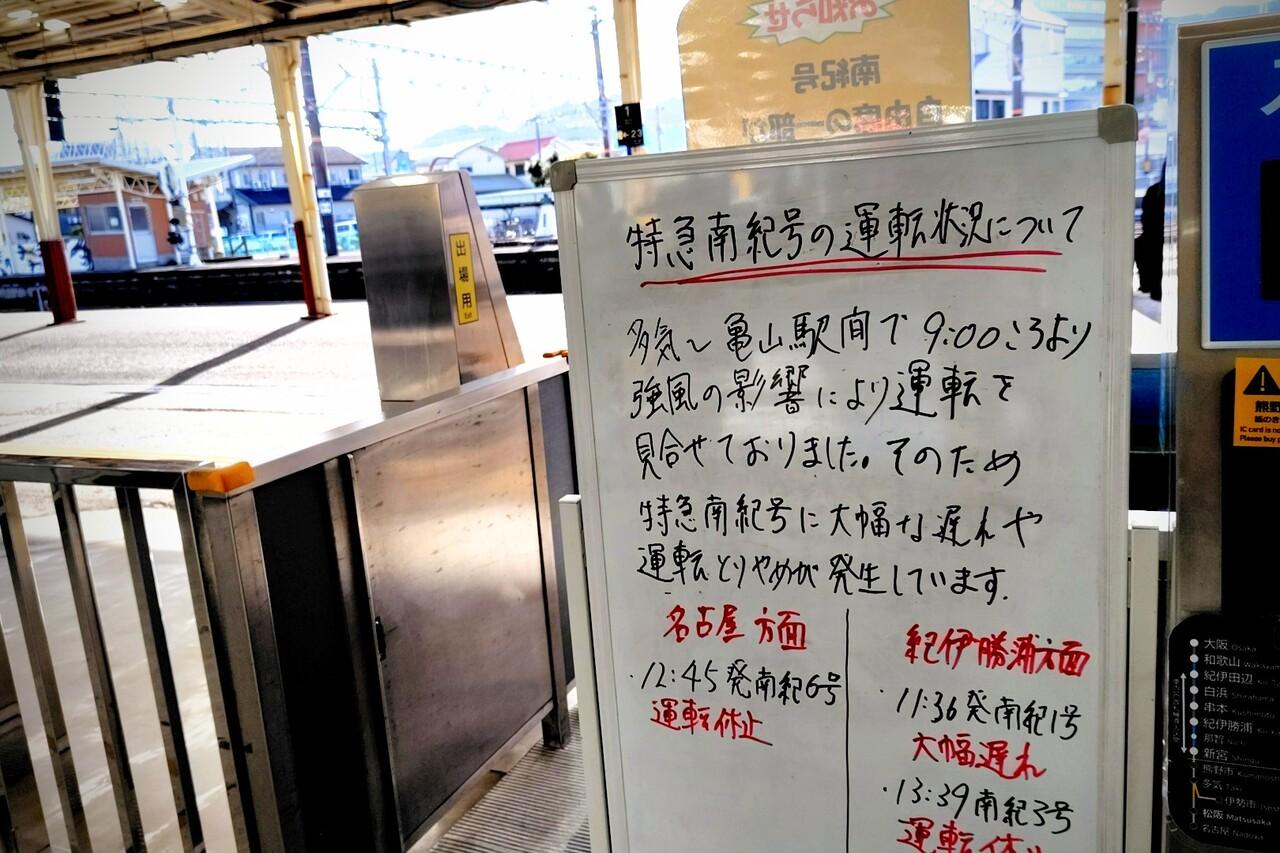 お知らせ
南紀号
自由席の一部
特急南紀号の運転状況について
多気～亀山駅間で9:00ころより
強風の影響により運転を
見合せておりました。そのため
特急南紀号に大幅な遅れや
運転とりやめが発生しています.
名古屋方面
・12:45発南紀6号
運転休止
紀伊勝浦方面
・11:36発南紀1号
大幅遅れ
・13:39南紀3号
運転休止
出場用
Exit
1
23
IC card is no
Please buy
大阪 Osaka
和歌山 Wakaya
紀伊田辺
白浜 Shirahama
串本 Kushimoto
紀伊勝浦
新宮 Shingu
熊野市 Kumano
多気 Taki
伊勢市
松阪 Matsusaka
名古屋 Nagoya